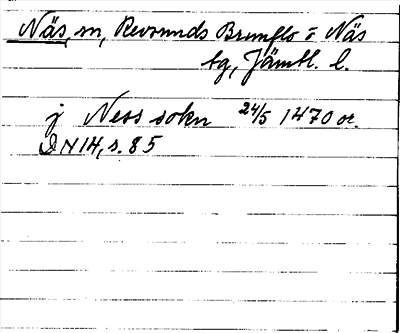 Näs, sn, Revsunds Brunflo o Näs
tg, Jämtl. l.
j Ness sokn 24/5 1470 or.
DN 14, s. 85